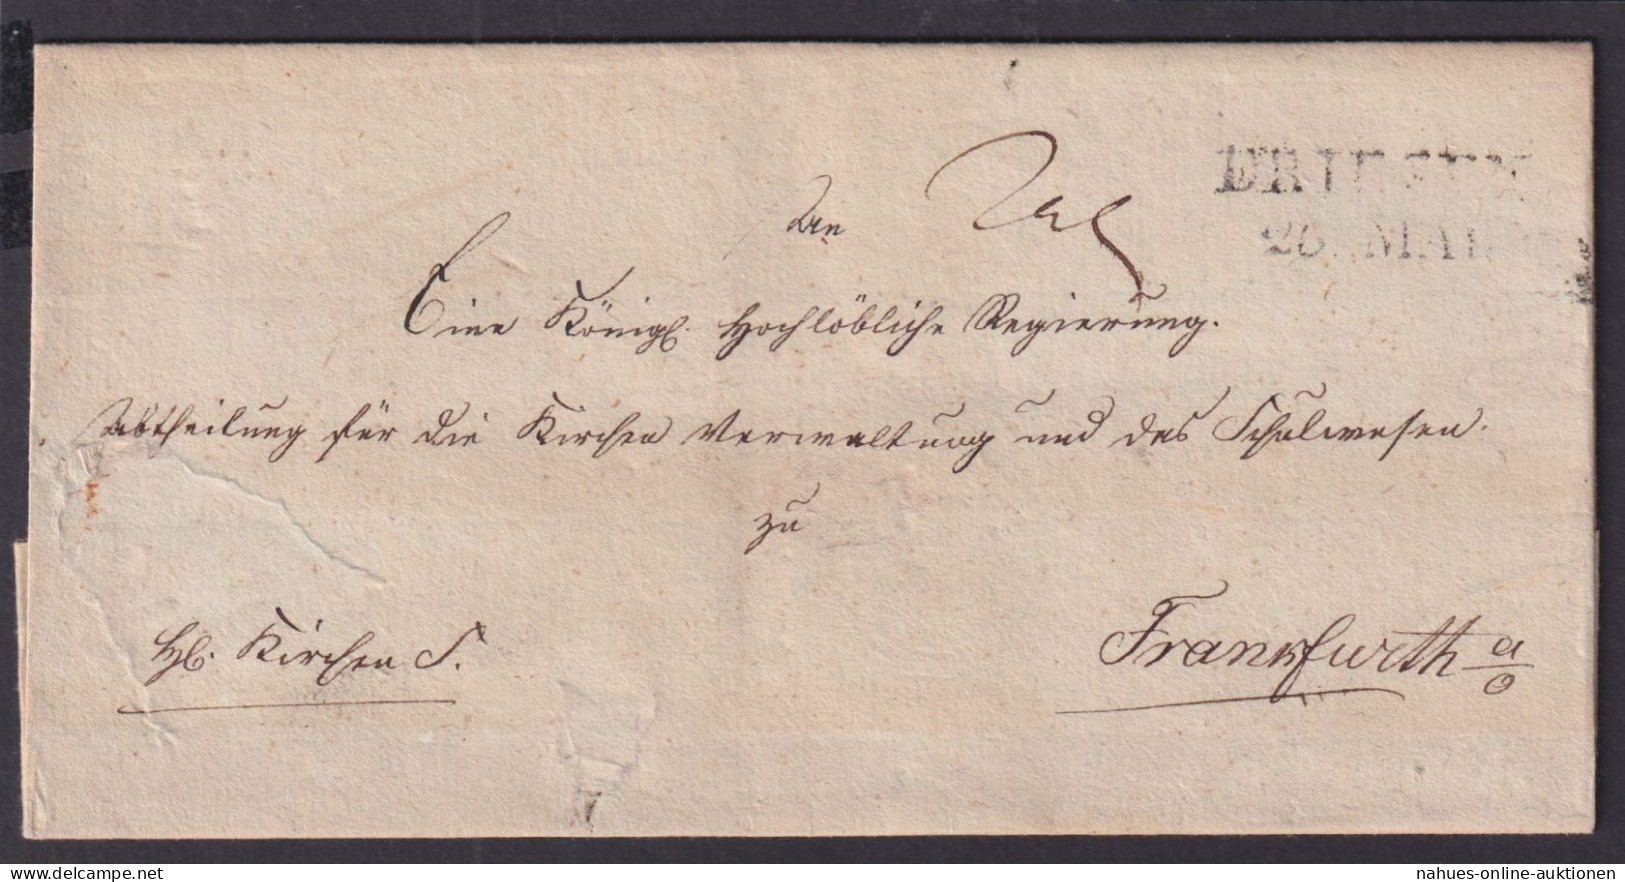 DRIESEN
26. MAI
An
Eine Königl. Hochlöbliche Regierung.
Abtheilung für die Kirchen Verwaltung und des Schulwesen.
zu
Hl. Kirchen S.
Frankfurth a/O
delcampe.net
nahues-online-auktionen